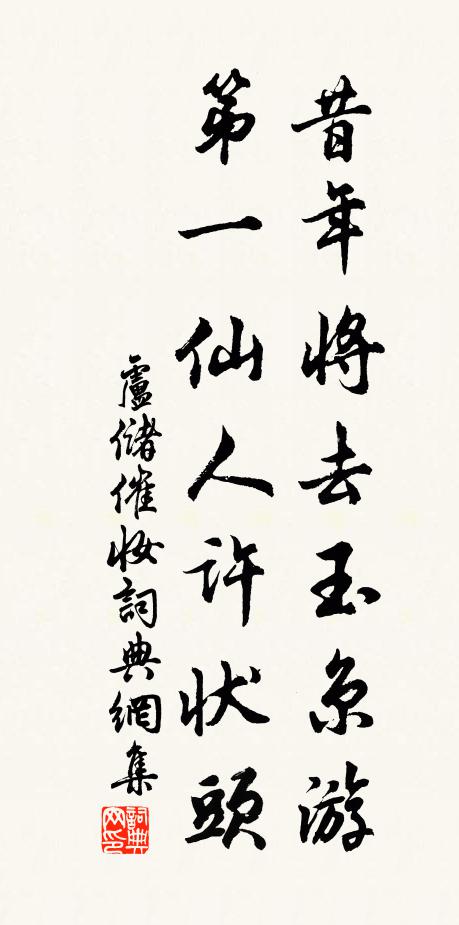 昔年將去玉京游
第一仙人許状頭
盧儲催妝詞典網集
詞典网印